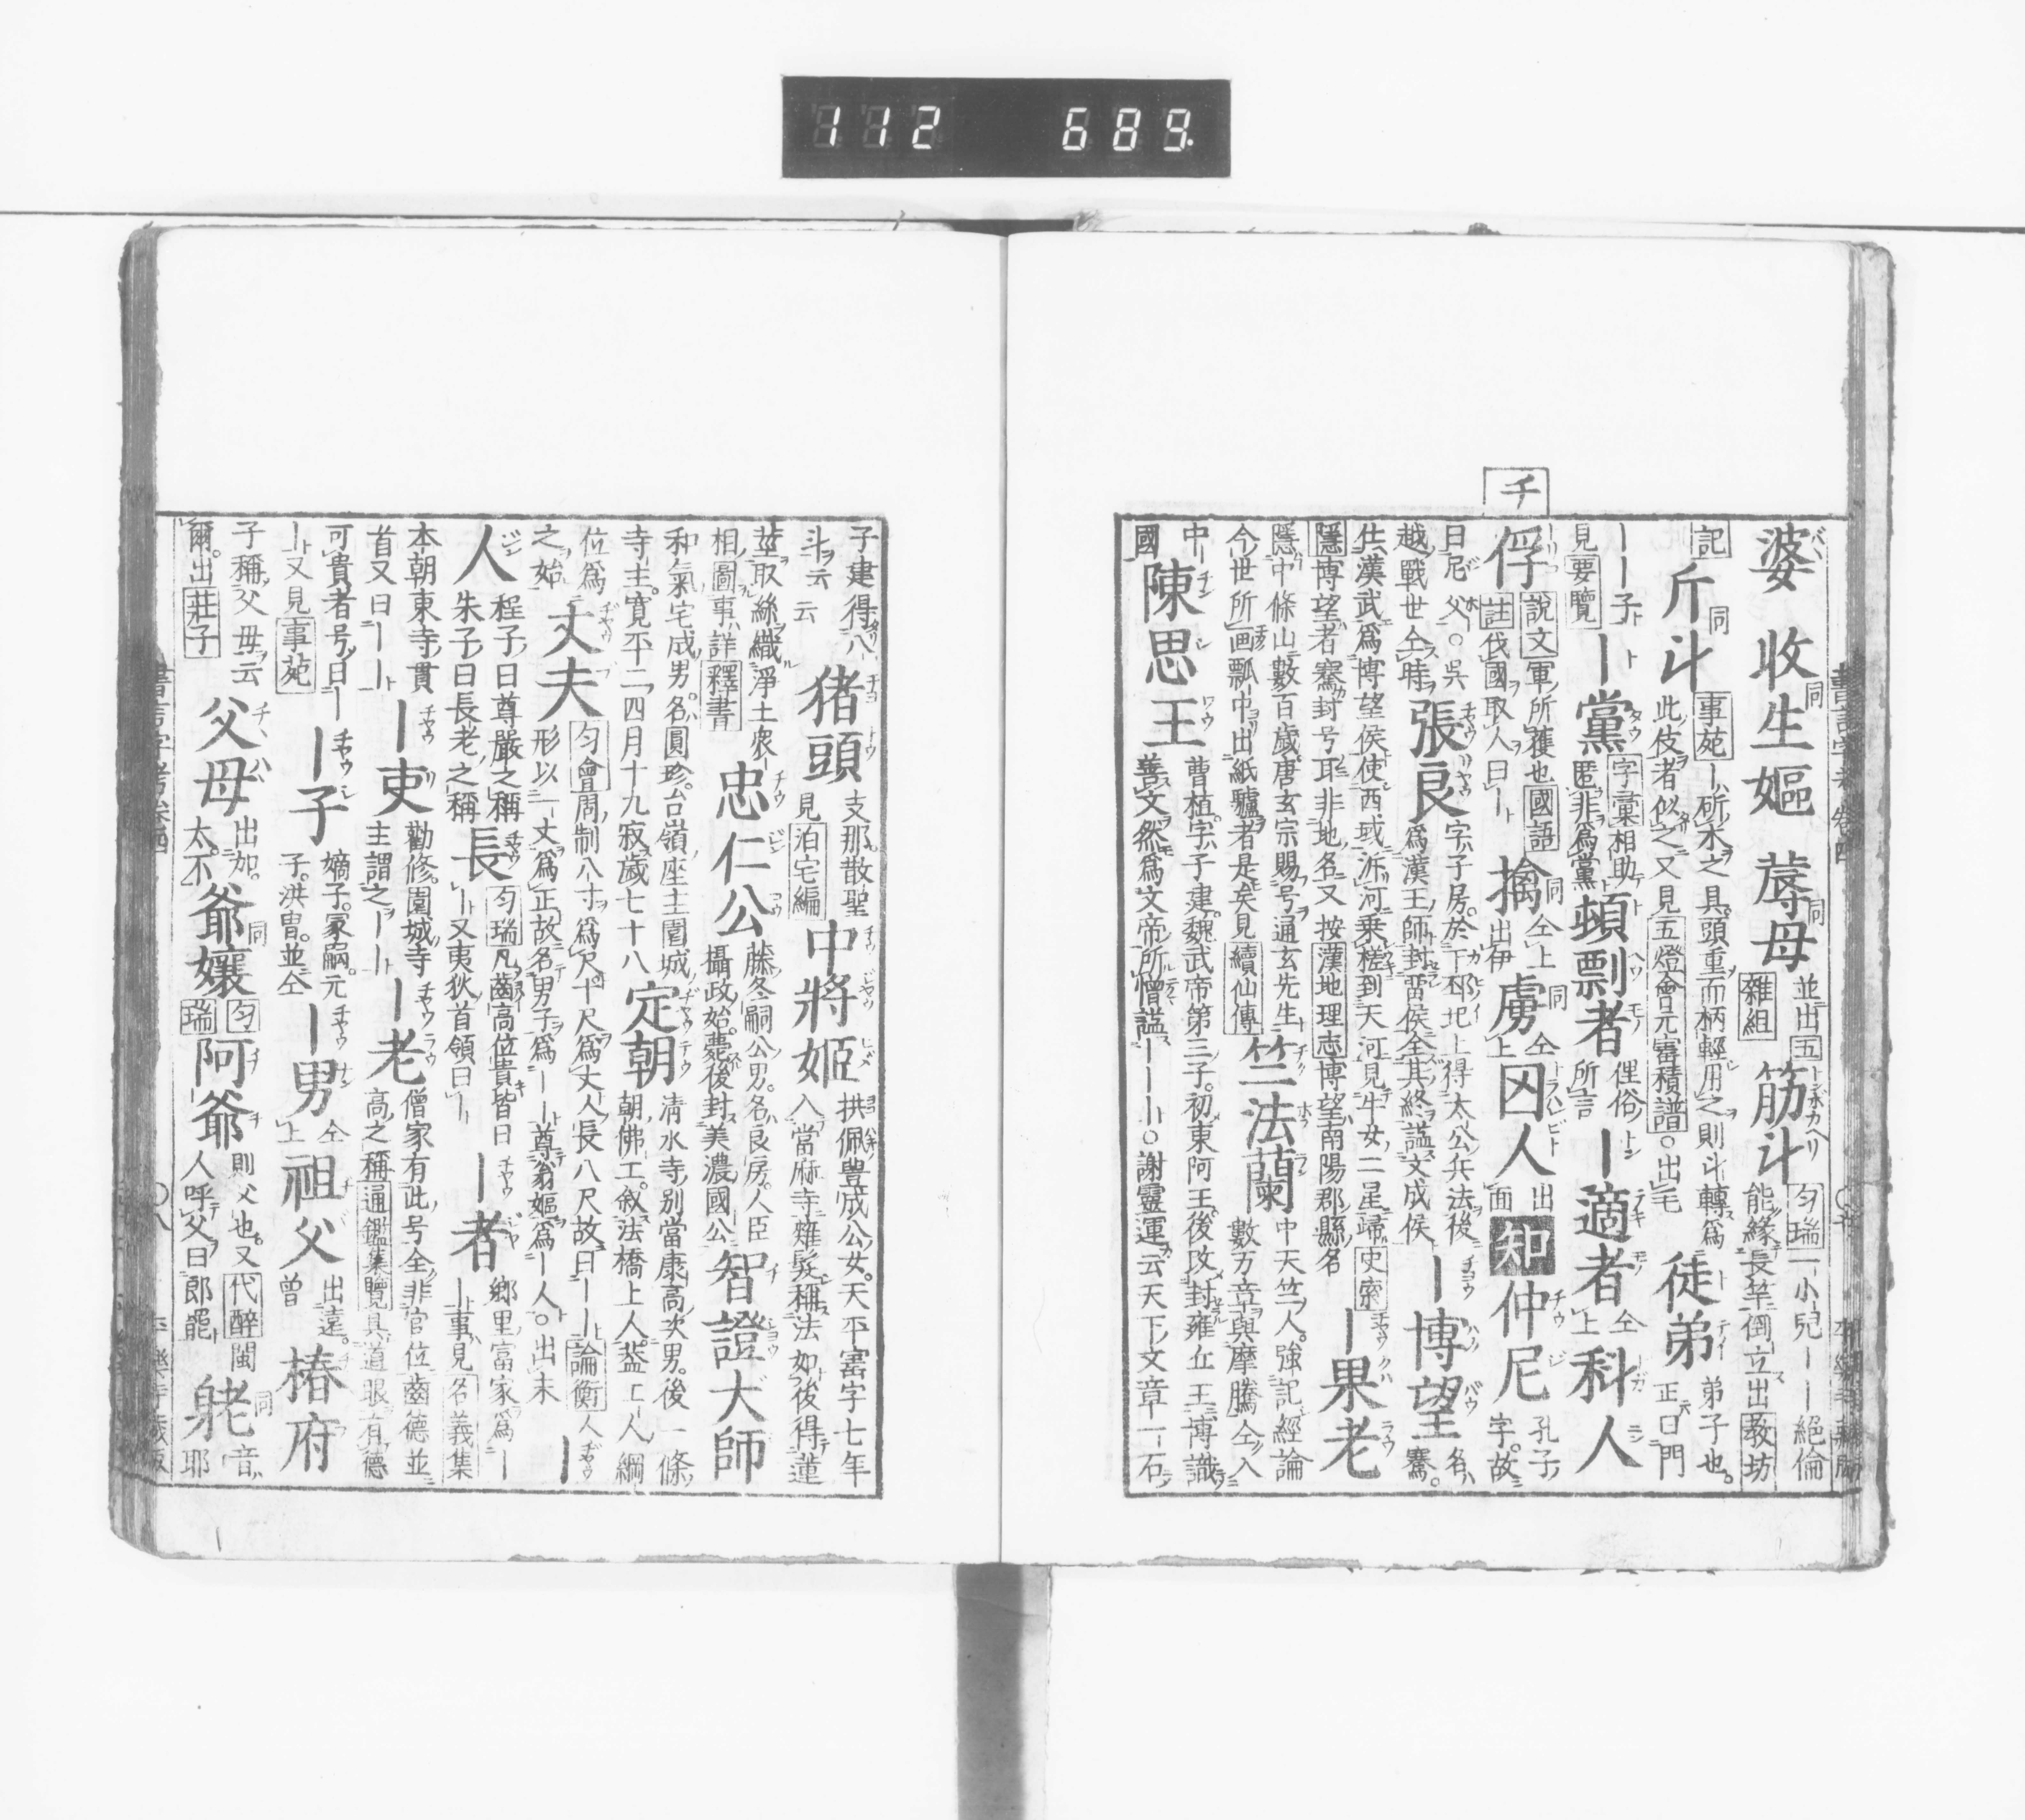 112 689.
チ
婆 収生嫗 蓐母 並出五雜組 筋斗 匀瑞一小兒一一絶倫能緣長竿倒立出教坊
記 斤斗 事苑一斫木之具頭重而柄輕用之則斗轉爲此伎者似之又見五燈會元審積譜○出毛 徒弟 弟子也。正曰門
一一子 一黨 字彙相助匿非爲黨 頓剽者 俚俗所言 一適者 仝上 科人
見要覽
俘 說文軍所獲也國語註伐國取人曰一 擒 仝上出伊 虜 仝上 囚人 出面 知 仲尼 孔子字。故
曰尼父○吳越戰世仝時 張良 字子房。於下邳圯上得太公兵法後爲漢王師封畱侯仝其終謚文成侯 一博望 名騫。
仕漢武爲博望侯使西域泝河乘槎到天河見牛女二星歸史索
隱博望者騫封号耳非地名又按漢地理志博望南陽郡縣名 一果老
隱中條山數百歲唐玄宗賜号通玄先生
今世所画瓢中出紙驢者是矣見續仙傳 竺法蘭 中天竺人。強記經論數万章與摩騰仝入
中一國 陳思王 曹植。字子建。魏武帝第三子。初東阿王。後改封雍丘王博識善文然爲文帝所憎謚一一一○謝靈運云天下文章一石
子建得八斗云云 猪頭 支那散聖見泊宅編 中將姬 拱佩豊成公女。天平寳字七年入當麻寺薙髮稱法如後得蓮
莖取絲織淨土衆相圖事詳釋書 忠仁公 藤冬嗣公男。名良房。人臣攝政始。薨後封美濃國公 智證大師
和氣宅成男。名圓珍。台嶺座主園城寺主。寛平二四月十九寂歲七十八 定朝 清水寺別當康高次男。後一條朝佛工。敘法橋上人盖工人綱
位爲之始 丈夫 匀會周制八寸爲尺十尺爲丈人長八尺故曰一一論衡人形以一丈爲正故名男子爲一一尊翁嫗爲一人○出未 一
人 程子曰尊嚴之稱朱子曰長老之稱 長 匀瑞凡齒高位貴皆曰一又夷狄首領曰一 一者 鄉里富家爲一一事見名義集
本朝東寺貫首又曰一一 一吏 勸修。園城寺主謂之一一 一老 僧家有此号全非官位齒德並高之稱通鑑集覽具道眼有德
可貴者号曰一一又見事苑 一子 嫡子。冢嗣。元子。洪胄。並仝 一男 仝上 祖父 出遠。曾 椿府
子稱父母云爾。出莊子 父母 出加。太不 爺孃 匀瑞 阿爺 則父也。又代醉閩人呼父曰郎罷 䑤 音耶